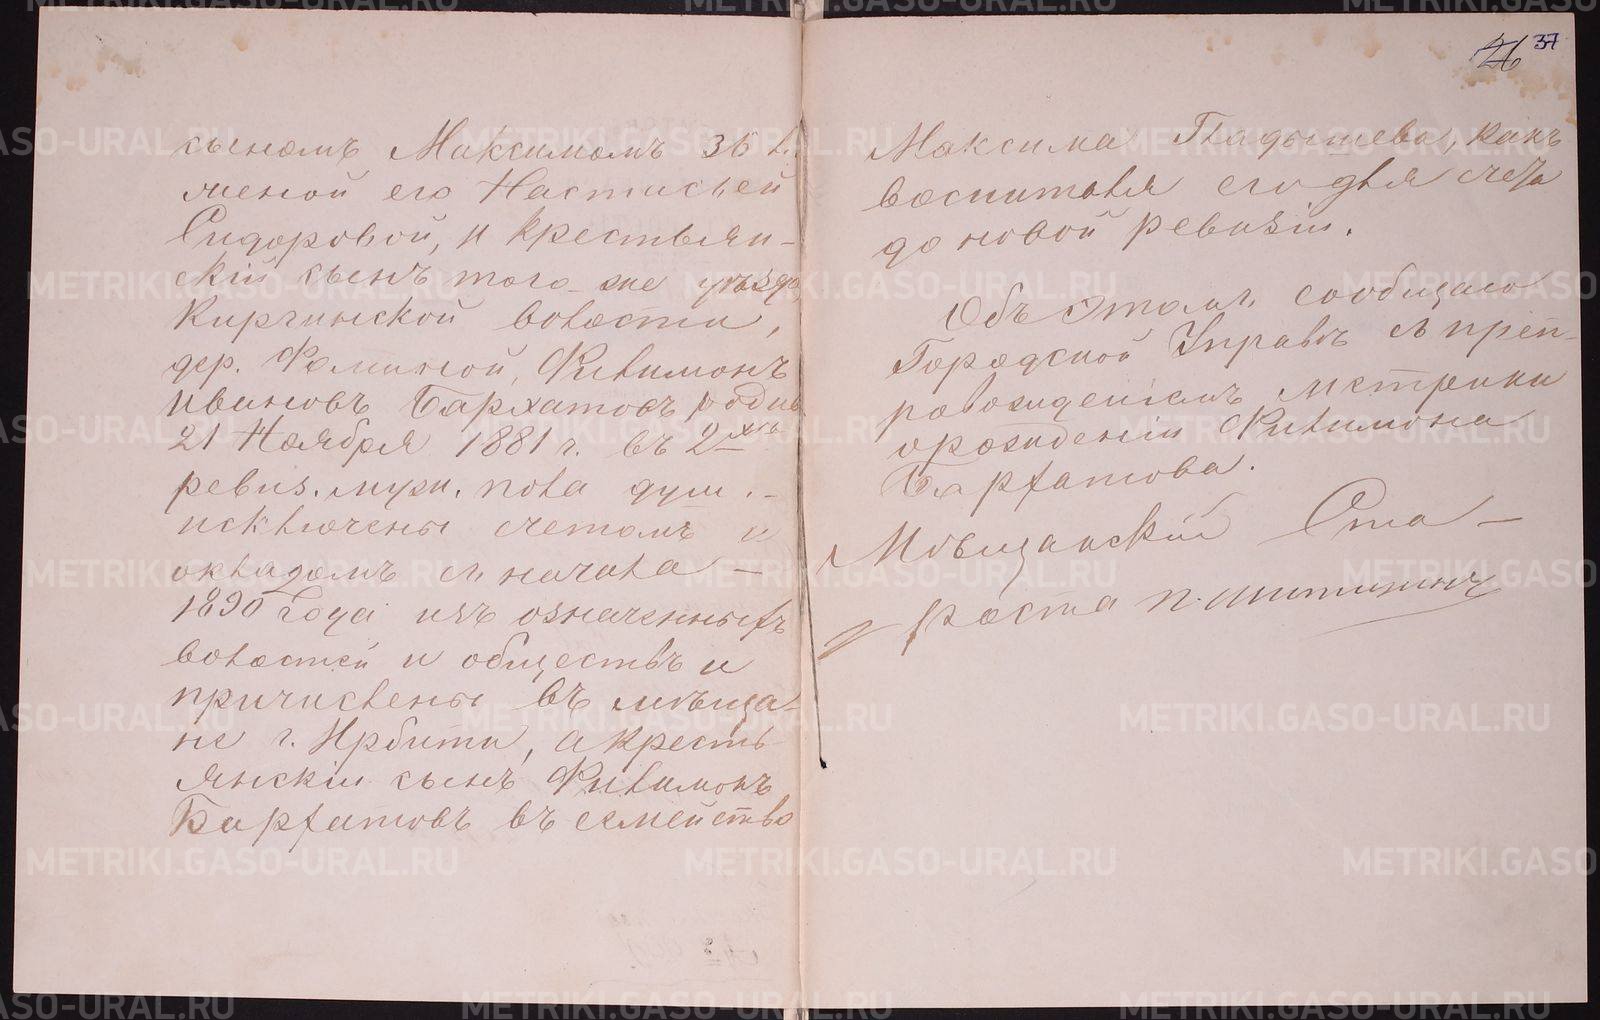 26 37
сыномъ Максимомъ 36 л.
женой его Настасьей
Сидоровой, и крестьян-
скій сынъ того-же уѣзда
Киргинской волости,
дер. Фоминой, Филимонъ
Ивановъ Бархатовъ родив
21 Ноября 1881 г. въ 2хъ
ревиз. муж. пола душ. -
исключены счетомъ и
окладомъ съ начала -
1890 года изъ означенныхъ
волостей и обществъ и
причислены въ мѣща-
не г. Ирбити, а кресть-
янскій сынъ Филимонъ
Бархатовъ въ семейство
Максима Гладышева, какъ
воспитателя его для счета
до новой ревизіи.
Объ этомъ сообщаю
Городской Управѣ съ преп-
ровожденіемъ метрики
о рожденіи Филимона
Бархатова.
Мѣщанскій Ста-
роста П. Шитихинъ
METRIKI.GASO-URAL.RU